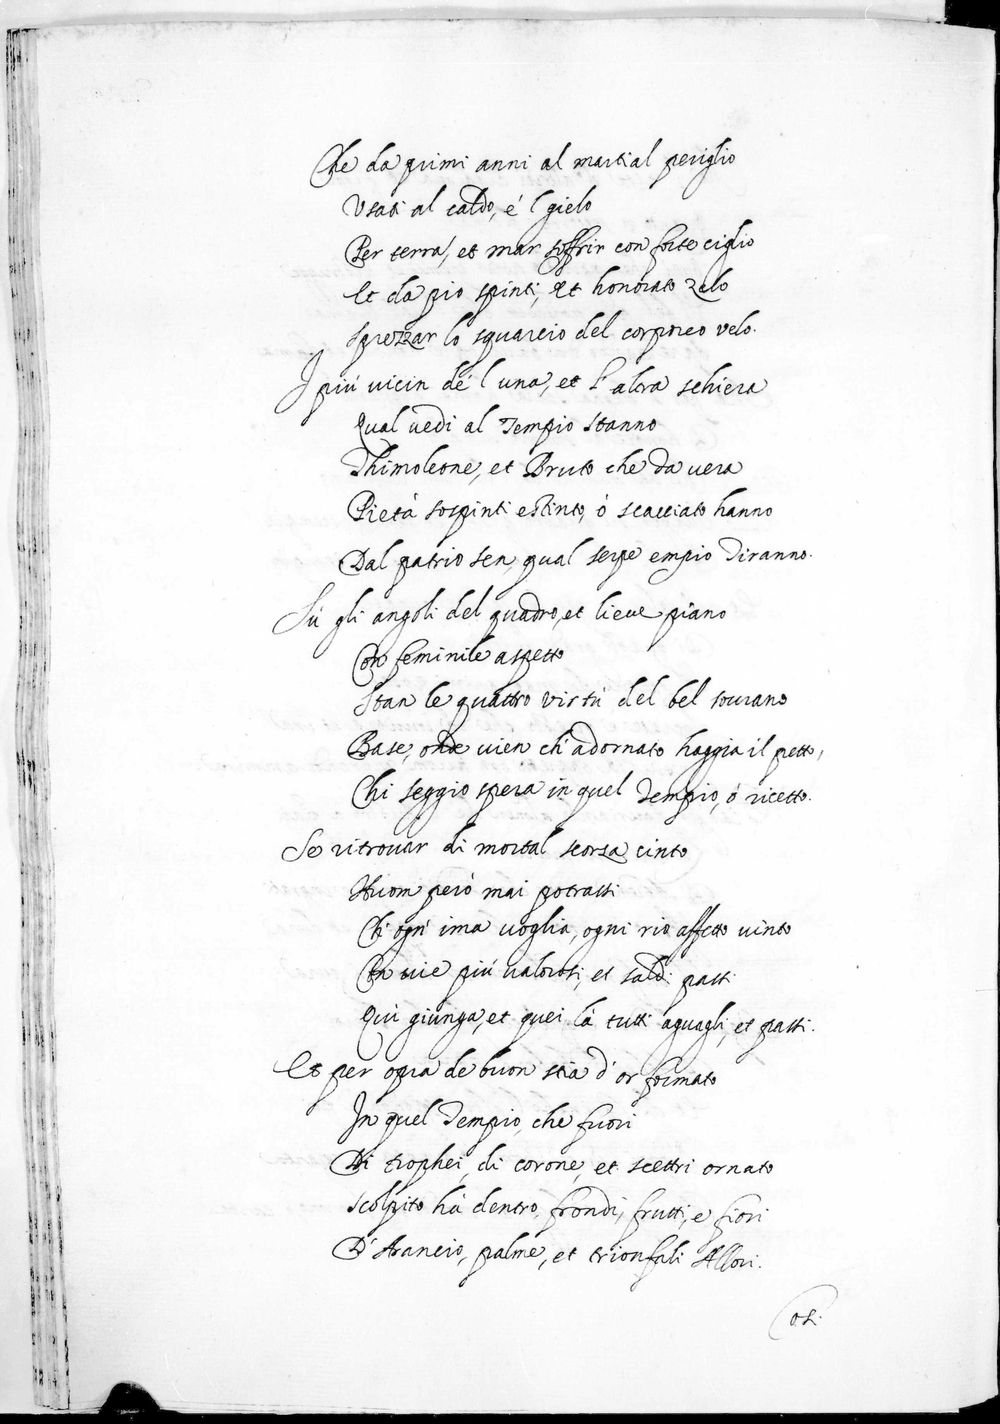 Che da primi anni al martial periglio
Usati al caldo, é l gielo
Per terra, et mar soffrir con forte ciglio
Et da pio spinti, et honorato zelo
Sprezzar lo squarcio del corporeo velo.
I piú vicin dé l una, et l' altra schiera
Qual vedi al Tempio stanno
Thimoleone, et Bruto che da vera
Pietà sospinti estinto, ó scacciato hanno
Dal patrio sen, qual serpe empio Tiranno.
Sú gli angoli del quadro, et lieve piano
Con feminile aspetto
Stan le quattro virtú del bel sovrano
Base, onde vien ch' adornato haggia il petto,
Chi seggio spera in quel Tempio, ó ricetto.
Se ritrovar di mortal scorza cinto
Huom però mai potrassi
Ch' ogn' ima voglia, ogni rio affetto vinto
Con vie più valorosi, et saldi passi
Quì giunga, et quei là tutti aguagli, et passi.
Et per opra de buon stia d' or formato
In quel Tempio, che fuori
Di trophei, di corone, et scettri ornato
Scolpito hà dentro, frondi, frutti, e fiori
D' Arancio, palme, et trionfali Allori.